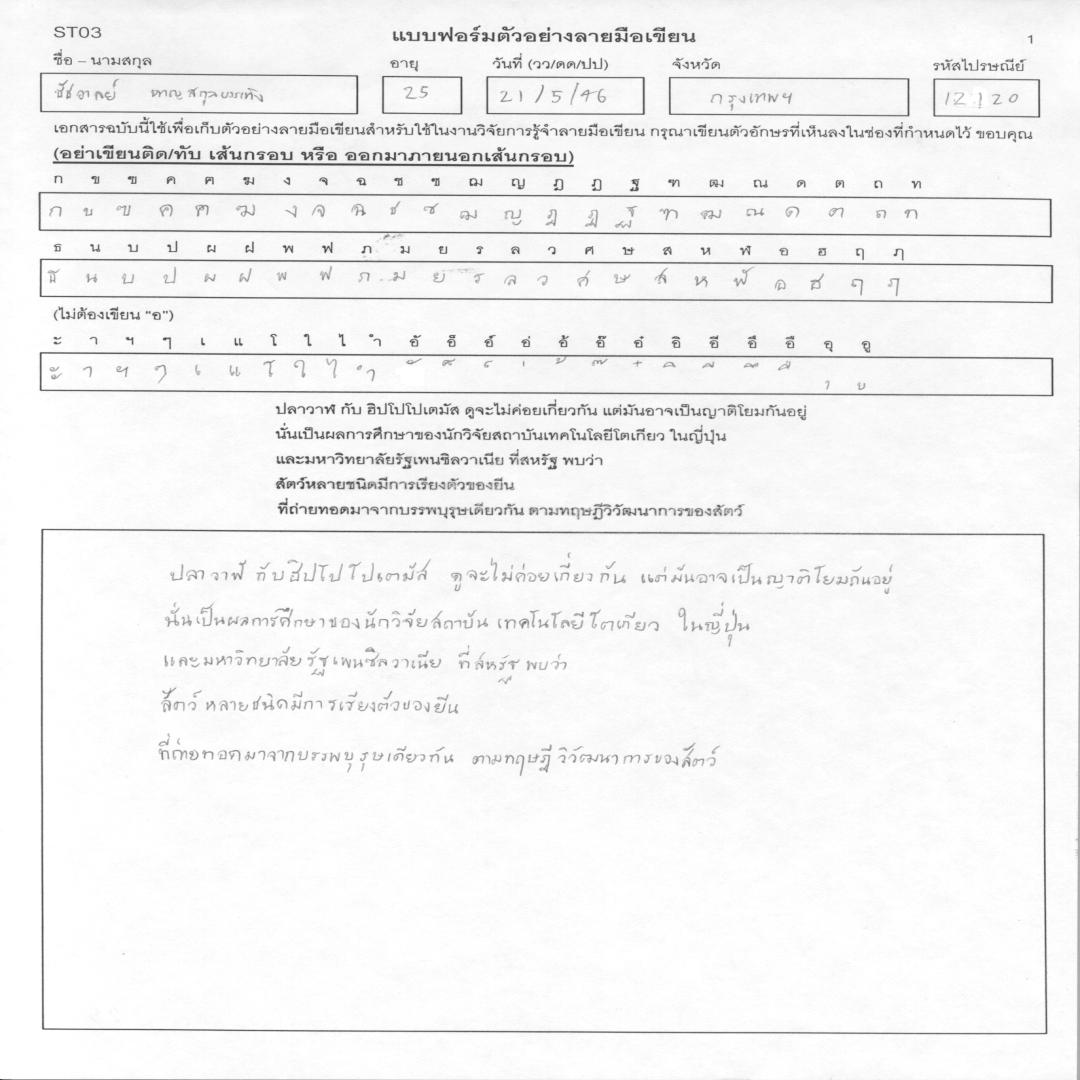 ST03 แบบฟอร์มตัวอย่างลายมือเขียน 1
ชื่อ – นามสกุล อายุ วันที่ (วว/ดด/ปป) จังหวัด รหัสไปรษณีย์
25 21/5/46 กรุงเทพฯ 12120
เอกสารฉบับนี้ใช้เพื่อเก็บตัวอย่างลายมือเขียนสำหรับใช้ในงานวิจัยการรู้จำลายมือเขียน กรุณาเขียนตัวอักษรที่เห็นลงในช่องที่กำหนดไว้ ขอบคุณ
(อย่าเขียนติด/ทับ เส้นกรอบ หรือ ออกมาภายนอกเส้นกรอบ)
ก ข ฃ ค ฅ ฆ ง จ ฉ ช ซ ฌ ญ ฎ ฏ ฐ ฑ ฒ ณ ด ต ถ ท
ก ข ฃ ค ฅ ฆ ง จ ฉ ช ซ ฌ ญ ฎ ฏ ฐ ฑ ฒ ณ ด ต ถ ท
ธ น บ ป ผ ฝ พ ฟ ภ ม ย ร ล ว ศ ษ ส ห ฬ อ ฮ ฤ ฦ
ธ น บ ป ผ ฝ พ ฟ ภ ม ย ร ล ว ศ ษ ส ห ฬ อ ฮ ฤ ฦ
(ไม่ต้องเขียน “อ”)
ะ า ฯ ๆ เ แ โ ใ ไ ำ อั อ็ อ์ อ่ อ้ อ๊ อ๋ อิ อี อึ อื อุ อู
ะ า ฯ ๆ เ แ โ ใ ไ ำ ั ็ ์ ่ ้ ๊ ๋ ิ ี ึ ื ุ ู
ปลาวาฬ กับ ฮิปโปโปเตมัส ดูจะไม่ค่อยเกี่ยวกัน แต่มันอาจเป็นญาติโยมกันอยู่
นั่นเป็นผลการศึกษาของนักวิจัยสถาบันเทคโนโลยีโตเกียว ในญี่ปุ่น
และมหาวิทยาลัยรัฐเพนซิลวาเนีย ที่สหรัฐ พบว่า
สัตว์หลายชนิดมีการเรียงตัวของยีน
ที่ถ่ายทอดมาจากบรรพบุรุษเดียวกัน ตามทฤษฎีวิวัฒนาการของสัตว์
ปลาวาฬ กับ ฮิปโปโปเตมัส ดูจะไม่ค่อยเกี่ยวกัน แต่มันอาจเป็นญาติโยมกันอยู่
นั่นเป็นผลการศึกษาของนักวิจัยสถาบัน เทคโนโลยีโตเกียว ในญี่ปุ่น
และมหาวิทยาลัยรัฐเพนซิลวาเนีย ที่สหรัฐ พบว่า
สัตว์ หลายชนิดมีการเรียงตัวของยีน
ที่ถ่ายทอดมาจากบรรพบุรุษเดียวกัน ตามทฤษฎีวิวัฒนาการของสัตว์